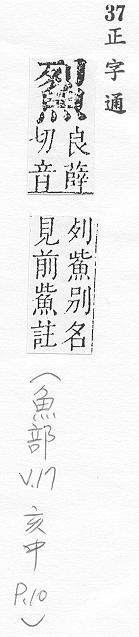 37 正字通
良薛
切音
列鮆別名
見前鮆註
（魚部 V.17 亥中 P.10）